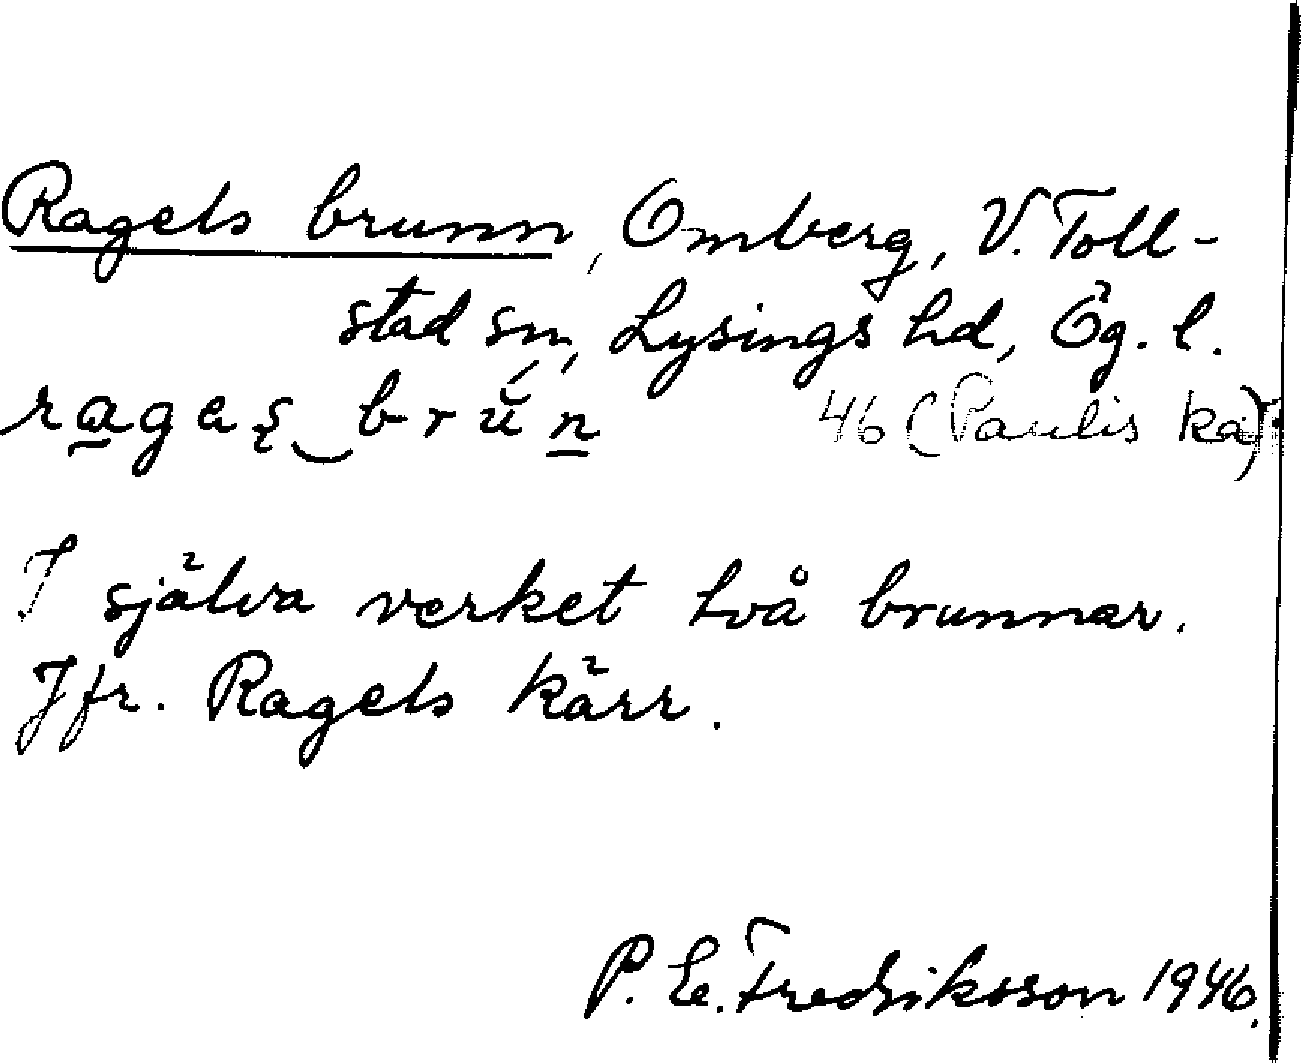 Ragels brunn, Omberg, V. Toll-
stad sn, Lysings hd, Ög. l.
46 (Paulis ka)
I själva verket två brunnar.
Jfr. Ragels kärr.
P. E. Fredriksson 1946.